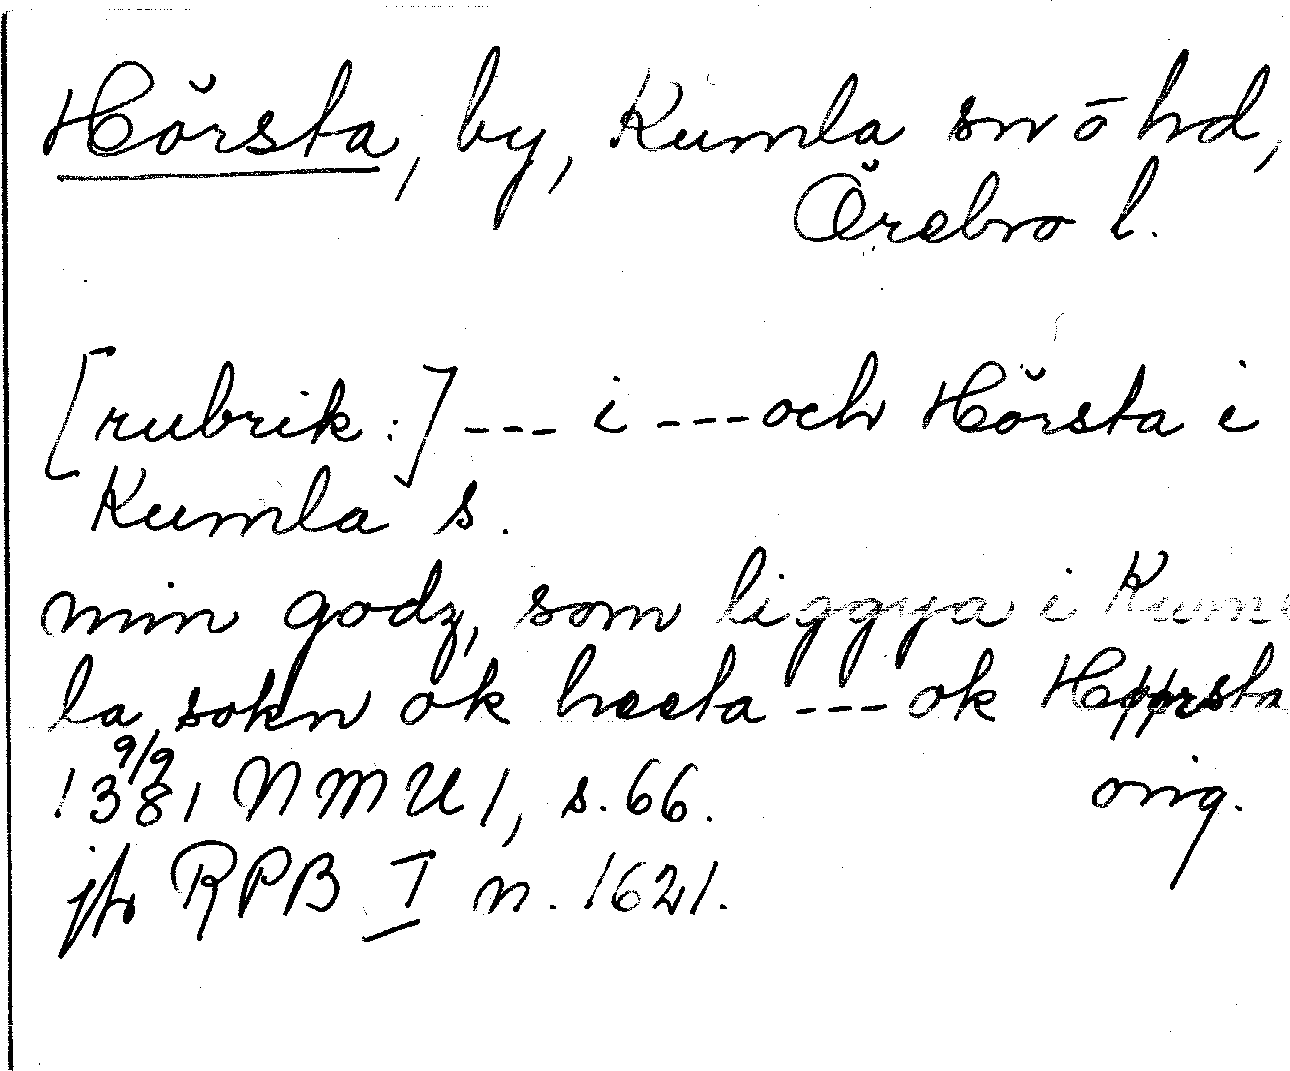 Hörsta, by, Kumla sn ō hd,
Örebro l.
[rubrik:] --- i --- och Hörsta i
Kumla s.
min godz, som liggya i Kum-
la sokn ok heeta --- ok Høørsta
9/9
1381 NMU 1, s. 66. orig.
jfr RPB I n. 1621.